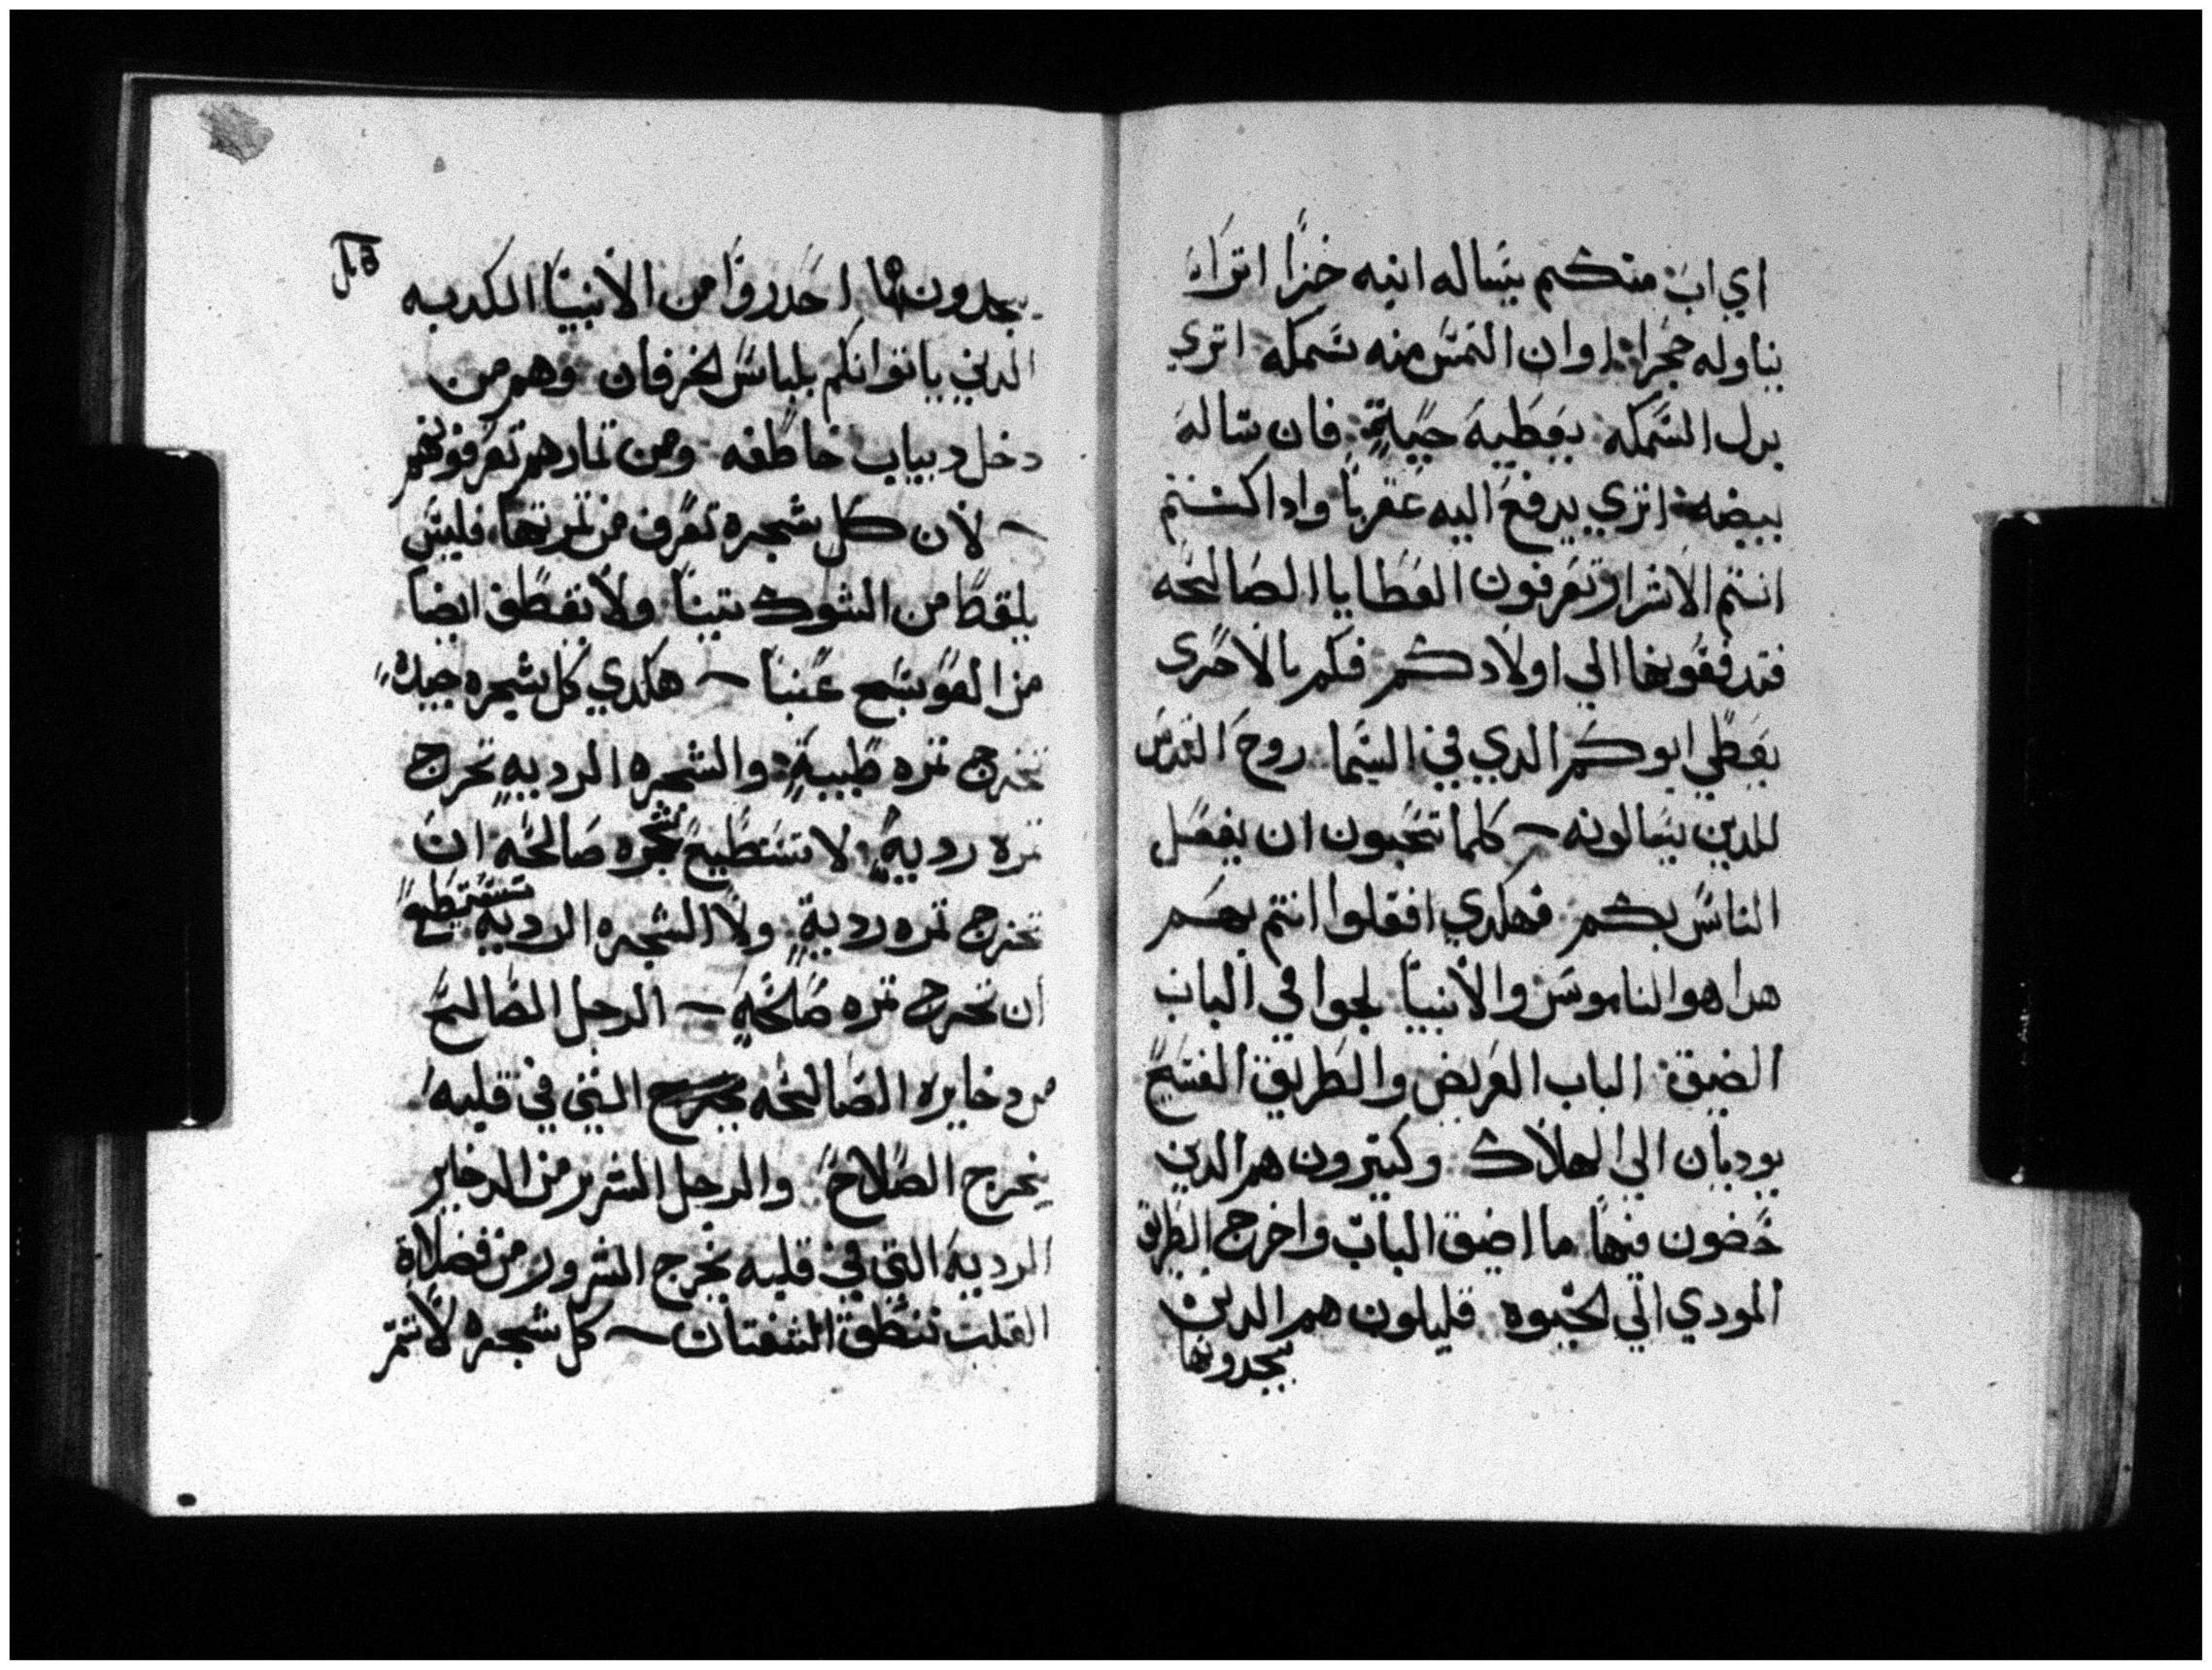 اي اب منكم يساله ابنه خبزا اتراه
يناوله حجرا: او ان التمس منه سمكه اتري
بدل السمكه يعطيه حيةٍ: فان ساله
بيضه: اتري يدفع اليه عقربا وادا كنتم
انتم الاشرار تعرفون العطايا الصالحه
فتدفعونها الي اولادكم فكم بالاحرى
يعطي ابوكم الدي في السما روح القدس
للدين يسالونه ~ كلما تحبون ان يفعل
الناس بكم فهكدي افعلوا انتم بهم
هدا هو الناموس والأنبيا لجوا في الباب
الضيق: الباب العريض والطريق الفسيح
يوديان الى الهلاك وكتيرون هم الدين
يخضون فيها ما اضيق الباب واخرج الطريق
المودي الي الحيوه قليلون هم الدين
يجدونها
يجدونها احدروا من الأنبيا الكدبه
الدين ياتوانكم بلباس الخرفان وهم من
دخل دبياب خاطفه ومن تمارهم تعرفونهم
~ لأن كل شجره تعرف من تمرتها، فليس
يلقط من الشوك تينا ولا يقطف ايضا
من العوسج عنبا ~ هكدي كل شجره جيده
تخرج تمره طيبةٍ: والشجره الرديه تخرج
تمره رديةٍ لا تستطيع شجره صالحه ان
تخرج تمره رديةٍ ولا الشجره الرديه تستطيع
ان تخرج تمره صالحةٍ ~ الرجل الصالح
من دخايره الصالحه التي في قلبه
يخرج الصلاح والرجل الشرير من الدخاير
الرديه التي في قلبه يخرج الشرور من فضلاة
القلب تنطق الشفتان ~ كل شجره لا تتمر